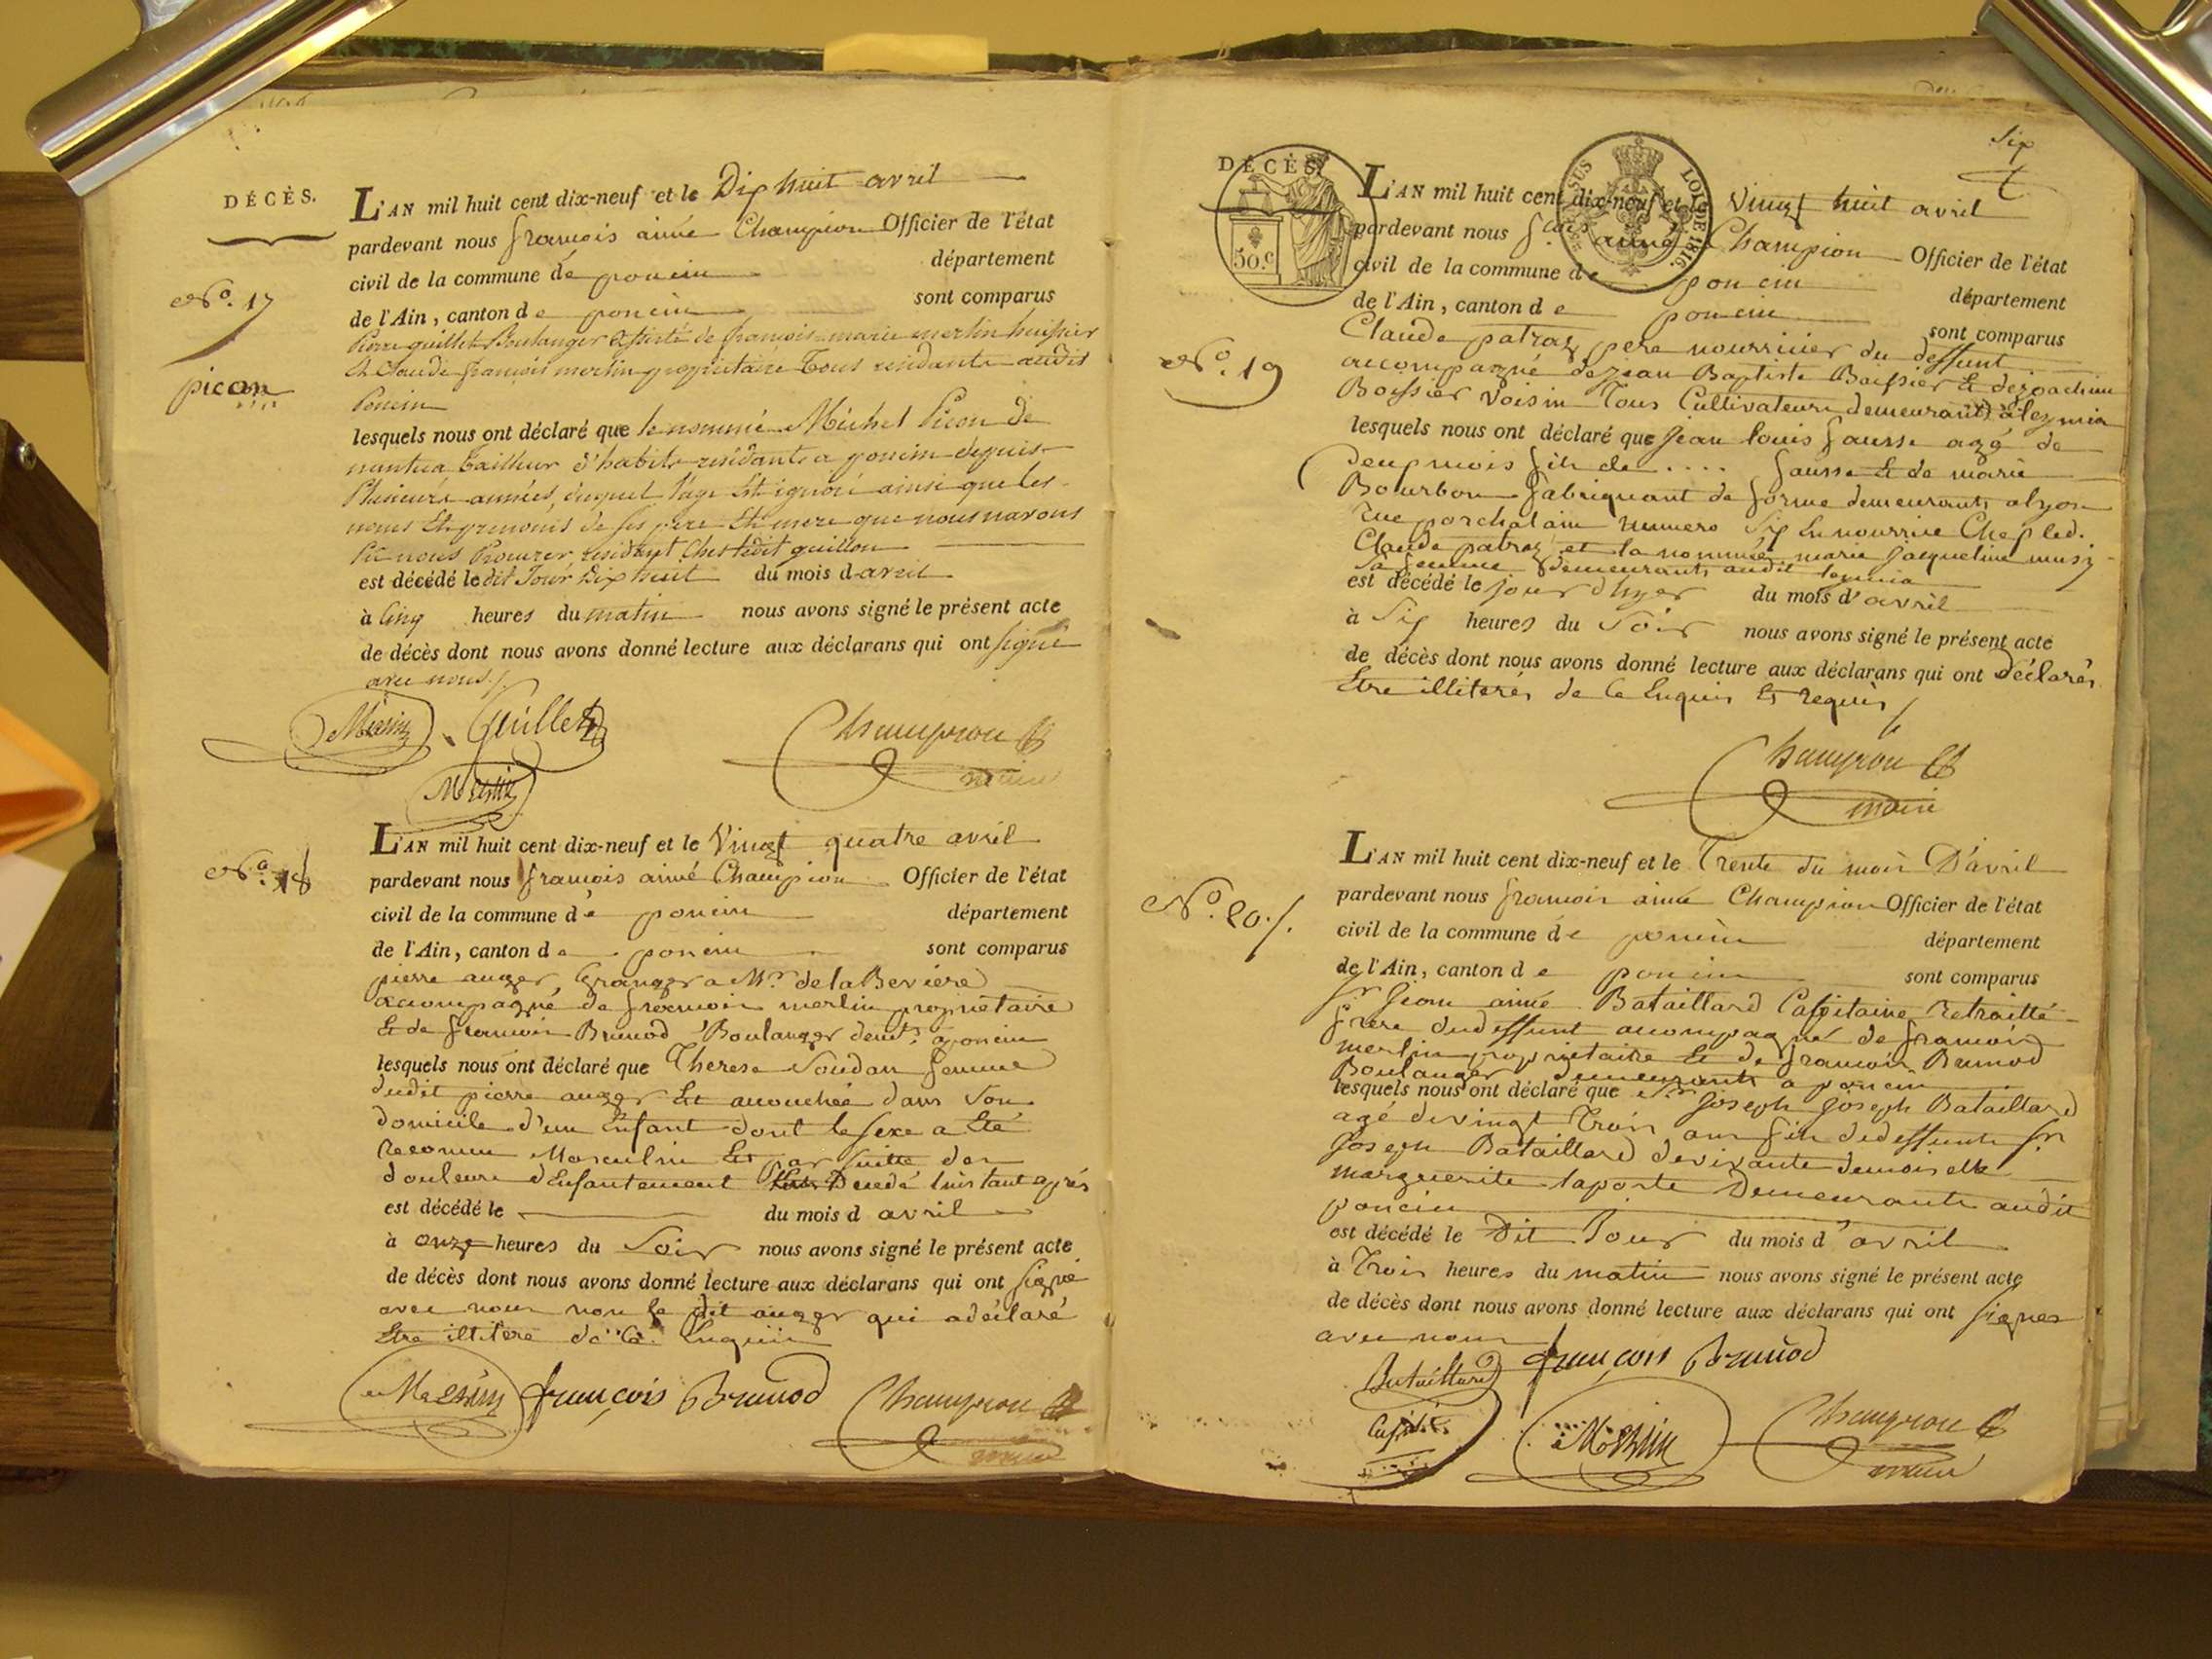 DÉCÈS.
L'AN mil huit cent dix-neuf et le Dix huit avril
pardevant nous françois aimé Champion Officier de l'état
civil de la commune de poncin département
de l'Ain, canton de poncin sont comparus
No. 17
picon
Pierre guillet Boulanger assisté de françois marie merlin huissier
et Claude françois merlin proprietaire Tous residants audit
Poncin
lesquels nous ont déclaré que le nommé Michel Picon de
nantua tailleur d'habits residant a poncin depuis
Plusieurs années, duquel l'age est ignoré ainsi que les
noms et prenoms de ses pere et mere que nous n'avons
pu nous Procurer, residant chés ledit guillon
est décédé le dit Jour dix huit du mois d avril
à Cinq heures du matin nous avons signé le présent acte
de décès dont nous avons donné lecture aux déclarans qui ont signé
avec nous
Merlin Guillet Champion
Merlin maire
L'AN mil huit cent dix-neuf et le Vingt quatre avril
No. 18
pardevant nous françois aimé Champion Officier de l'état
civil de la commune de poncin département
de l'Ain, canton de poncin sont comparus
pierre auger, Granger a Mr. de la Beviere
accompagné de françois merlin proprietaire
et de françois Brunod Boulanger demts. a poncin
lesquels nous ont déclaré que Therese Soudan femme
dudit pierre auger Est accouchée dans Son
domicile d'un Enfant dont le sexe a Eté
reconnu Masculin Et par suitte des
douleurs d'Enfantement Decedé l'instant après
est décédé le du mois d avril
à onze heures du Soir nous avons signé le présent acte
de décès dont nous avons donné lecture aux déclarans qui ont signé
avec nous non le dit auger qui a déclaré
Etre illitere de ce Enquis
Merlin françois Brunod Champion
maire
Six
DÉCÈS.
50.c
SUS LOI DE 1816.
L'AN mil huit cent dix-neuf et le Vingt huit avril
pardevant nous fçois aimé Champion Officier de l'état
civil de la commune de poncin département
de l'Ain, canton de poncin sont comparus
No. 19
Claude patraz pere nourricier du deffunt
accompagné de jean Baptiste Boissier et de joachim
Boissier voisin Tous Cultivateurs demeurants a leymia
lesquels nous ont déclaré que Jean louis fausse agé de
Deux mois fils de .... fausse et de marie
Bourbon fabriquant de forme demeurants a lyon
rue porchalain numero Six En nourrice Chez led.
Claude patraz et la nommée marie Jacqueline musy
Sa femme demeurants audit leymia
est décédé le jour d'hyer du mois d'avril
à Six heures du Soir nous avons signé le présent acte
de décès dont nous avons donné lecture aux déclarans qui ont Déclarés
Etre illiterés de ce Enquis et requis
Champion
maire
L'AN mil huit cent dix-neuf et le Trente du mois D'avril
No. 20
pardevant nous françois aimé Champion Officier de l'état
civil de la commune de poncin département
de l'Ain, canton de poncin sont comparus
Sr Jean aimé Bataillard Capitaine Retraitté
frere du deffunt accompagné de françois
merlin proprietaire et de françois Brunod
Boulanger demeurants a poncin
lesquels nous ont déclaré que Sr Joseph Joseph Bataillard
agé de vingt Trois ans fils de deffunt Sr
Joseph Bataillard de vivante demoiselle
marguerite laporte Demeurante audit
poncin
est décédé le Dit Jour du mois d'avril
à Trois heures du matin nous avons signé le présent acte
de décès dont nous avons donné lecture aux déclarans qui ont signes
avec nous
Bataillard françois Brunod
Merlin Champion
maire